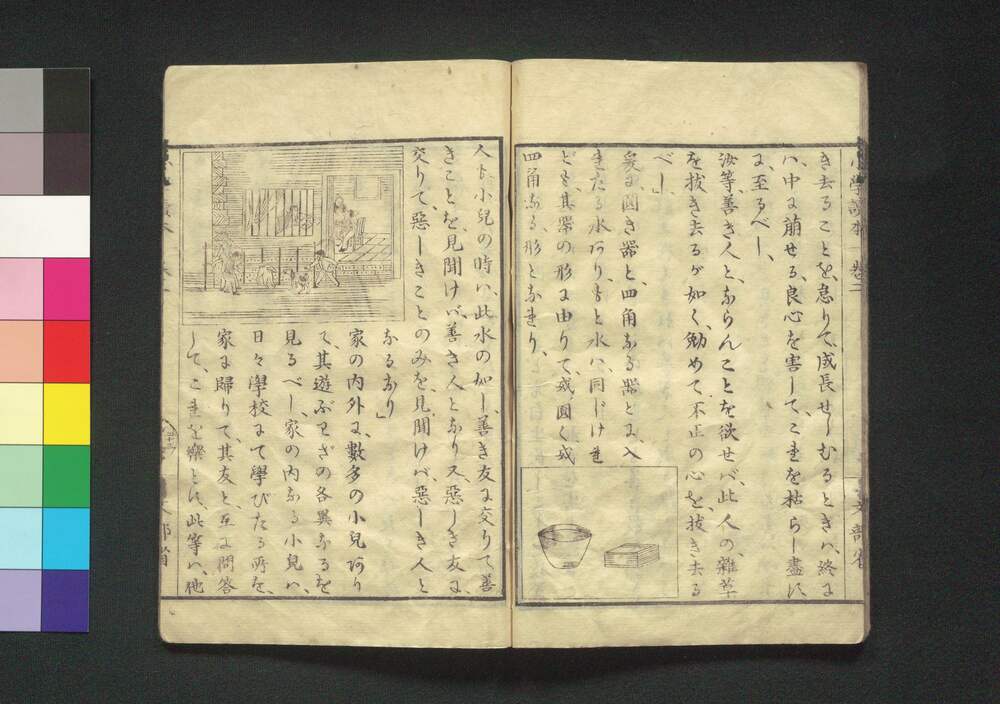 き去ることを怠りて成長せしむるときハ、終に
ハ、中に萠せる、良心を害して、これを枯らし盡すに、
至るべし、
汝等善き人と、ならんことを欲せバ、此人の、雜草
を拔き去るが如く、勉めて、不正の心を、拔き去る
べし」
爰に、圓き器と、四角なる器とに、入
れたる水あり、もと水ハ、同じけれ
ども、其器の形に由りて、或圓く或
四角なる、形となれり、
人も、小兒の時ハ、此水の如し、善き友に交りて善
きことを、見聞けバ、善き人となり、又惡しき友に、
交りて、惡しきことのみを、見聞けバ、惡しき人と
なるなり」
家の内外に、數多の小兒あり
て、其遊ぶわざの各異なるを
見るべし、家の内なる小兒ハ、
日々學校にて學びたる所を、
家に歸りて、其友と、互に問答
して、これを樂とす、此等ハ、他
文部省